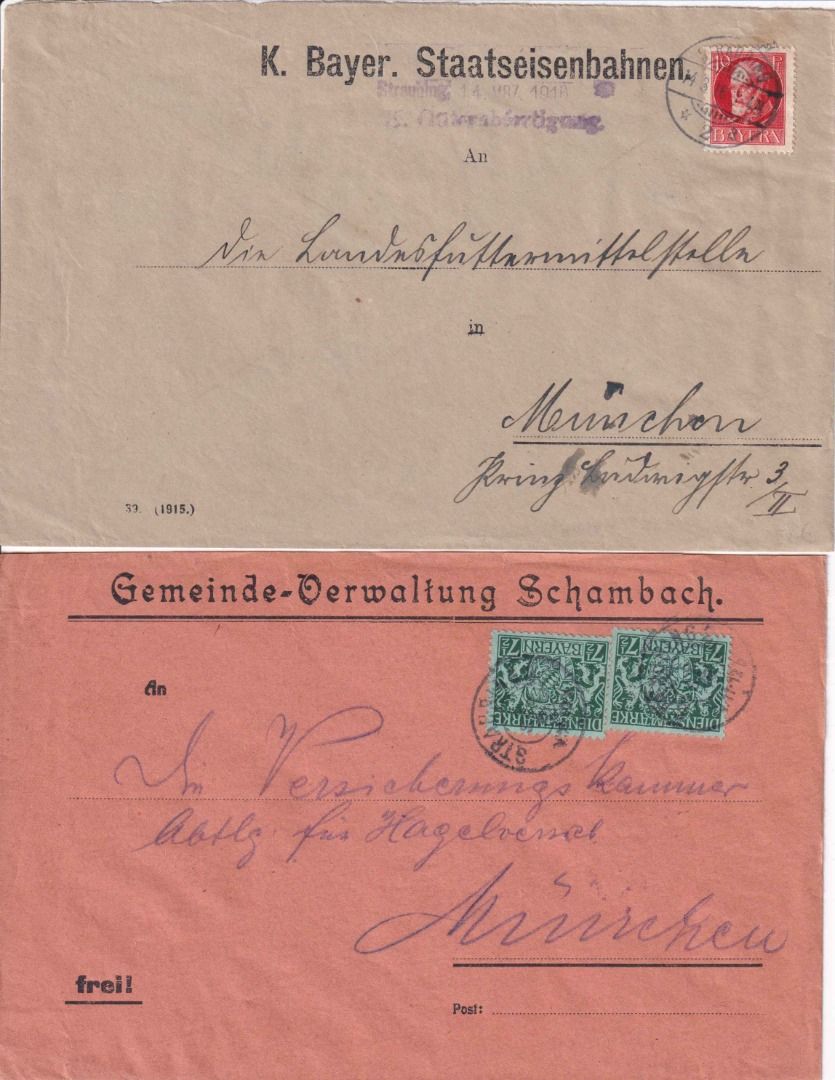 K. Bayer. Staatseisenbahnen.
Straubing, 14. MRZ. 1916
K. Güterabfertigung.
10 Pf
BAYERN
An
die Landesfuttermittelstelle
in
München
Prinz Ludwigstr 3/II
39. (1915.)
Gemeinde-Verwaltung Schambach.
7½ BAYERN 7½
DIENSTMARKE
7½ BAYERN 7½
DIENSTMARKE
An
Die Versicherungskammer
Abtlg. für Hagelvers
München
frei!
Post: